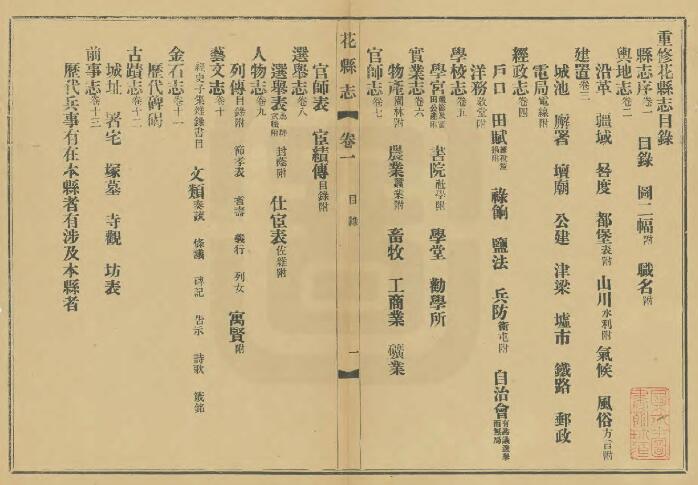 重修花縣志目錄
縣志序卷一 目錄 圖二幅附 職名附
輿地志卷二
沿革 疆域 晷度 都堡表附 山川水利附 氣候 風俗方言附
建置卷三
城池 廨署 壇廟 公建 津梁 墟市 鐵路 郵政
電局電綠附
經政志卷四
戶口 田賦 祿餉 鹽法 兵防衞屯附 自治會
洋務教堂附
學校志卷五
學宮 書院社學附 學堂 勸學所
實業志卷六
物產園林附 農業蠶業附 畜牧 工商業 礦業
官師志卷七
花縣志 卷一 目錄 一
官師表 宦績傳目錄附
選舉志卷八
選舉表 封蔭附 仕宦表佐雜附
人物志卷九
列傳目錄附 節孝表 耆壽 義行 列女 寓賢附
藝文志卷十
經史子集雜錄書目 文類奏議 條議 碑記 告示 詩歌 箴銘
金石志卷十一
歷代碑碣
古蹟志卷十二
城址 署宅 塚墓 寺觀 坊表
前事志卷十三
歷代兵事有在本縣者有涉及本縣者